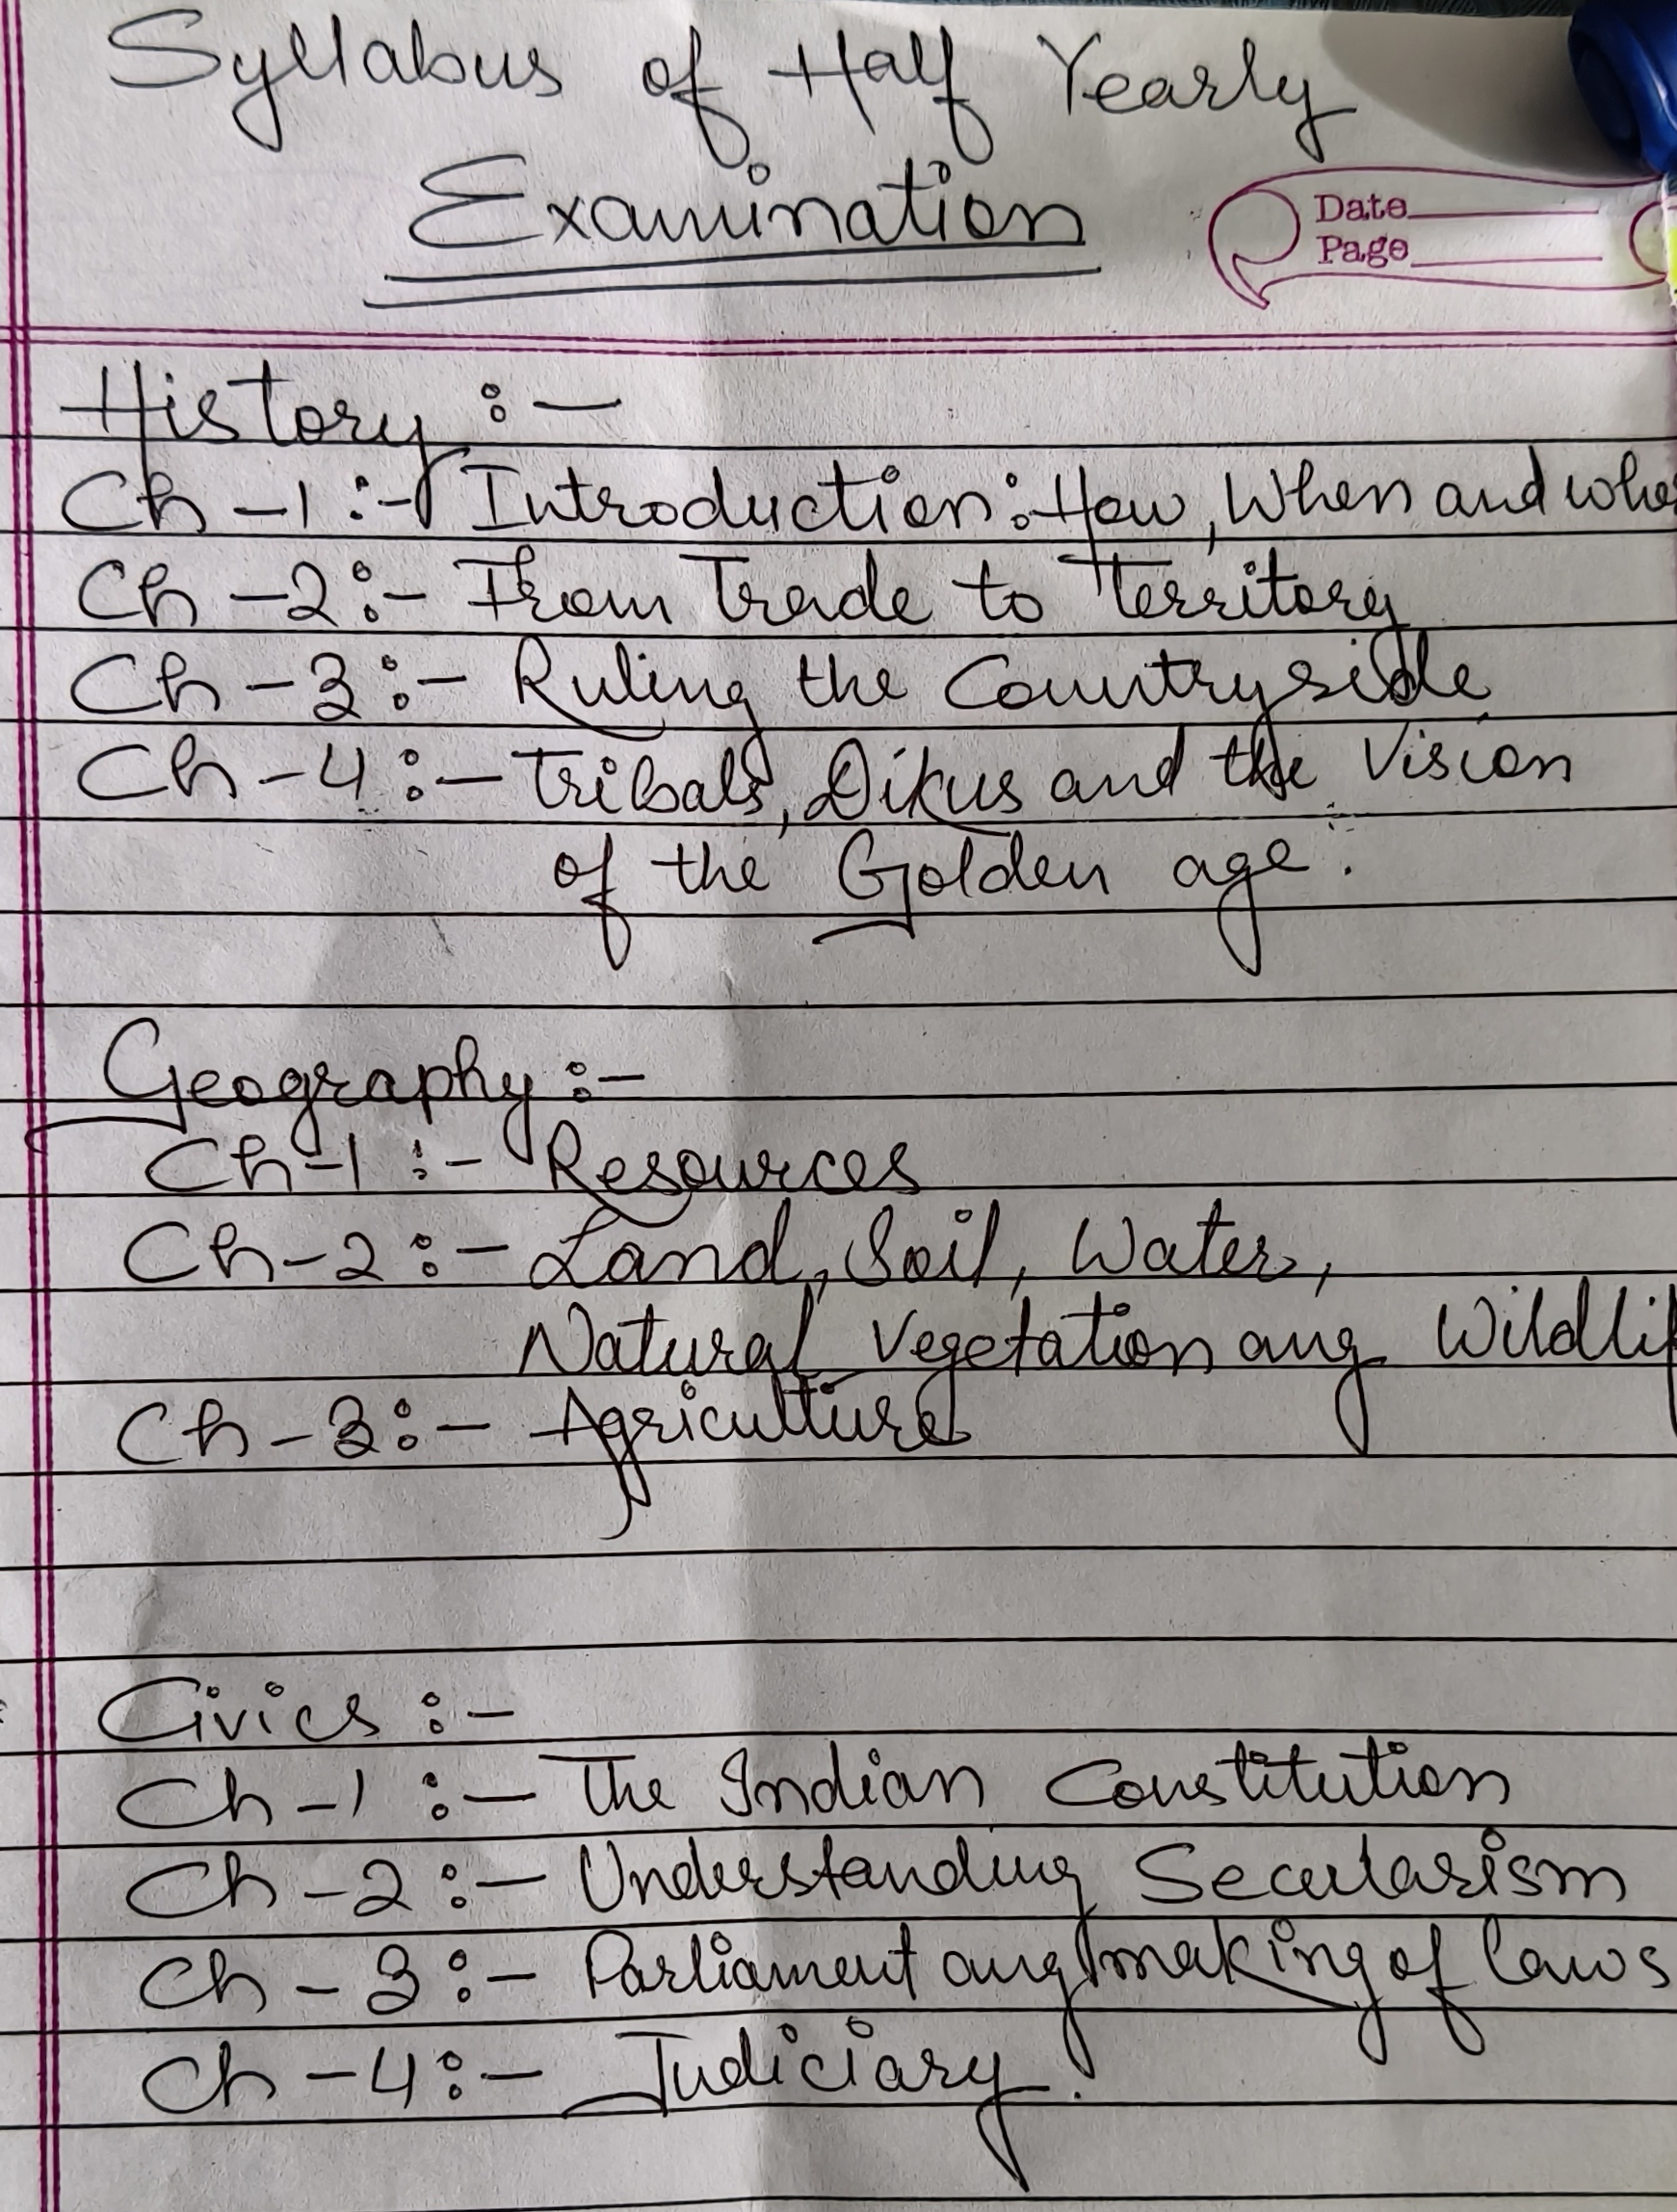 Syllabus of Half Yearly
Examination
Date
Page
History :-
Ch-1 :- Introduction: How, When and whe
Ch-2 :- From Trade to Territory
Ch-3 :- Ruling the Countryside
Ch-4 :- Tribals, Dikus and the Vision
of the Golden age.
Geography :-
Ch-1 :- Resources
Ch-2 :- Land, Soil, Water,
Natural Vegetation ang Wildlif
Ch-3 :- Agriculture
Civics :-
Ch-1 :- The Indian Constitution
Ch-2 :- Understanding Secularism
Ch-3 :- Parliament ang making of laws
Ch-4 :- Judiciary.